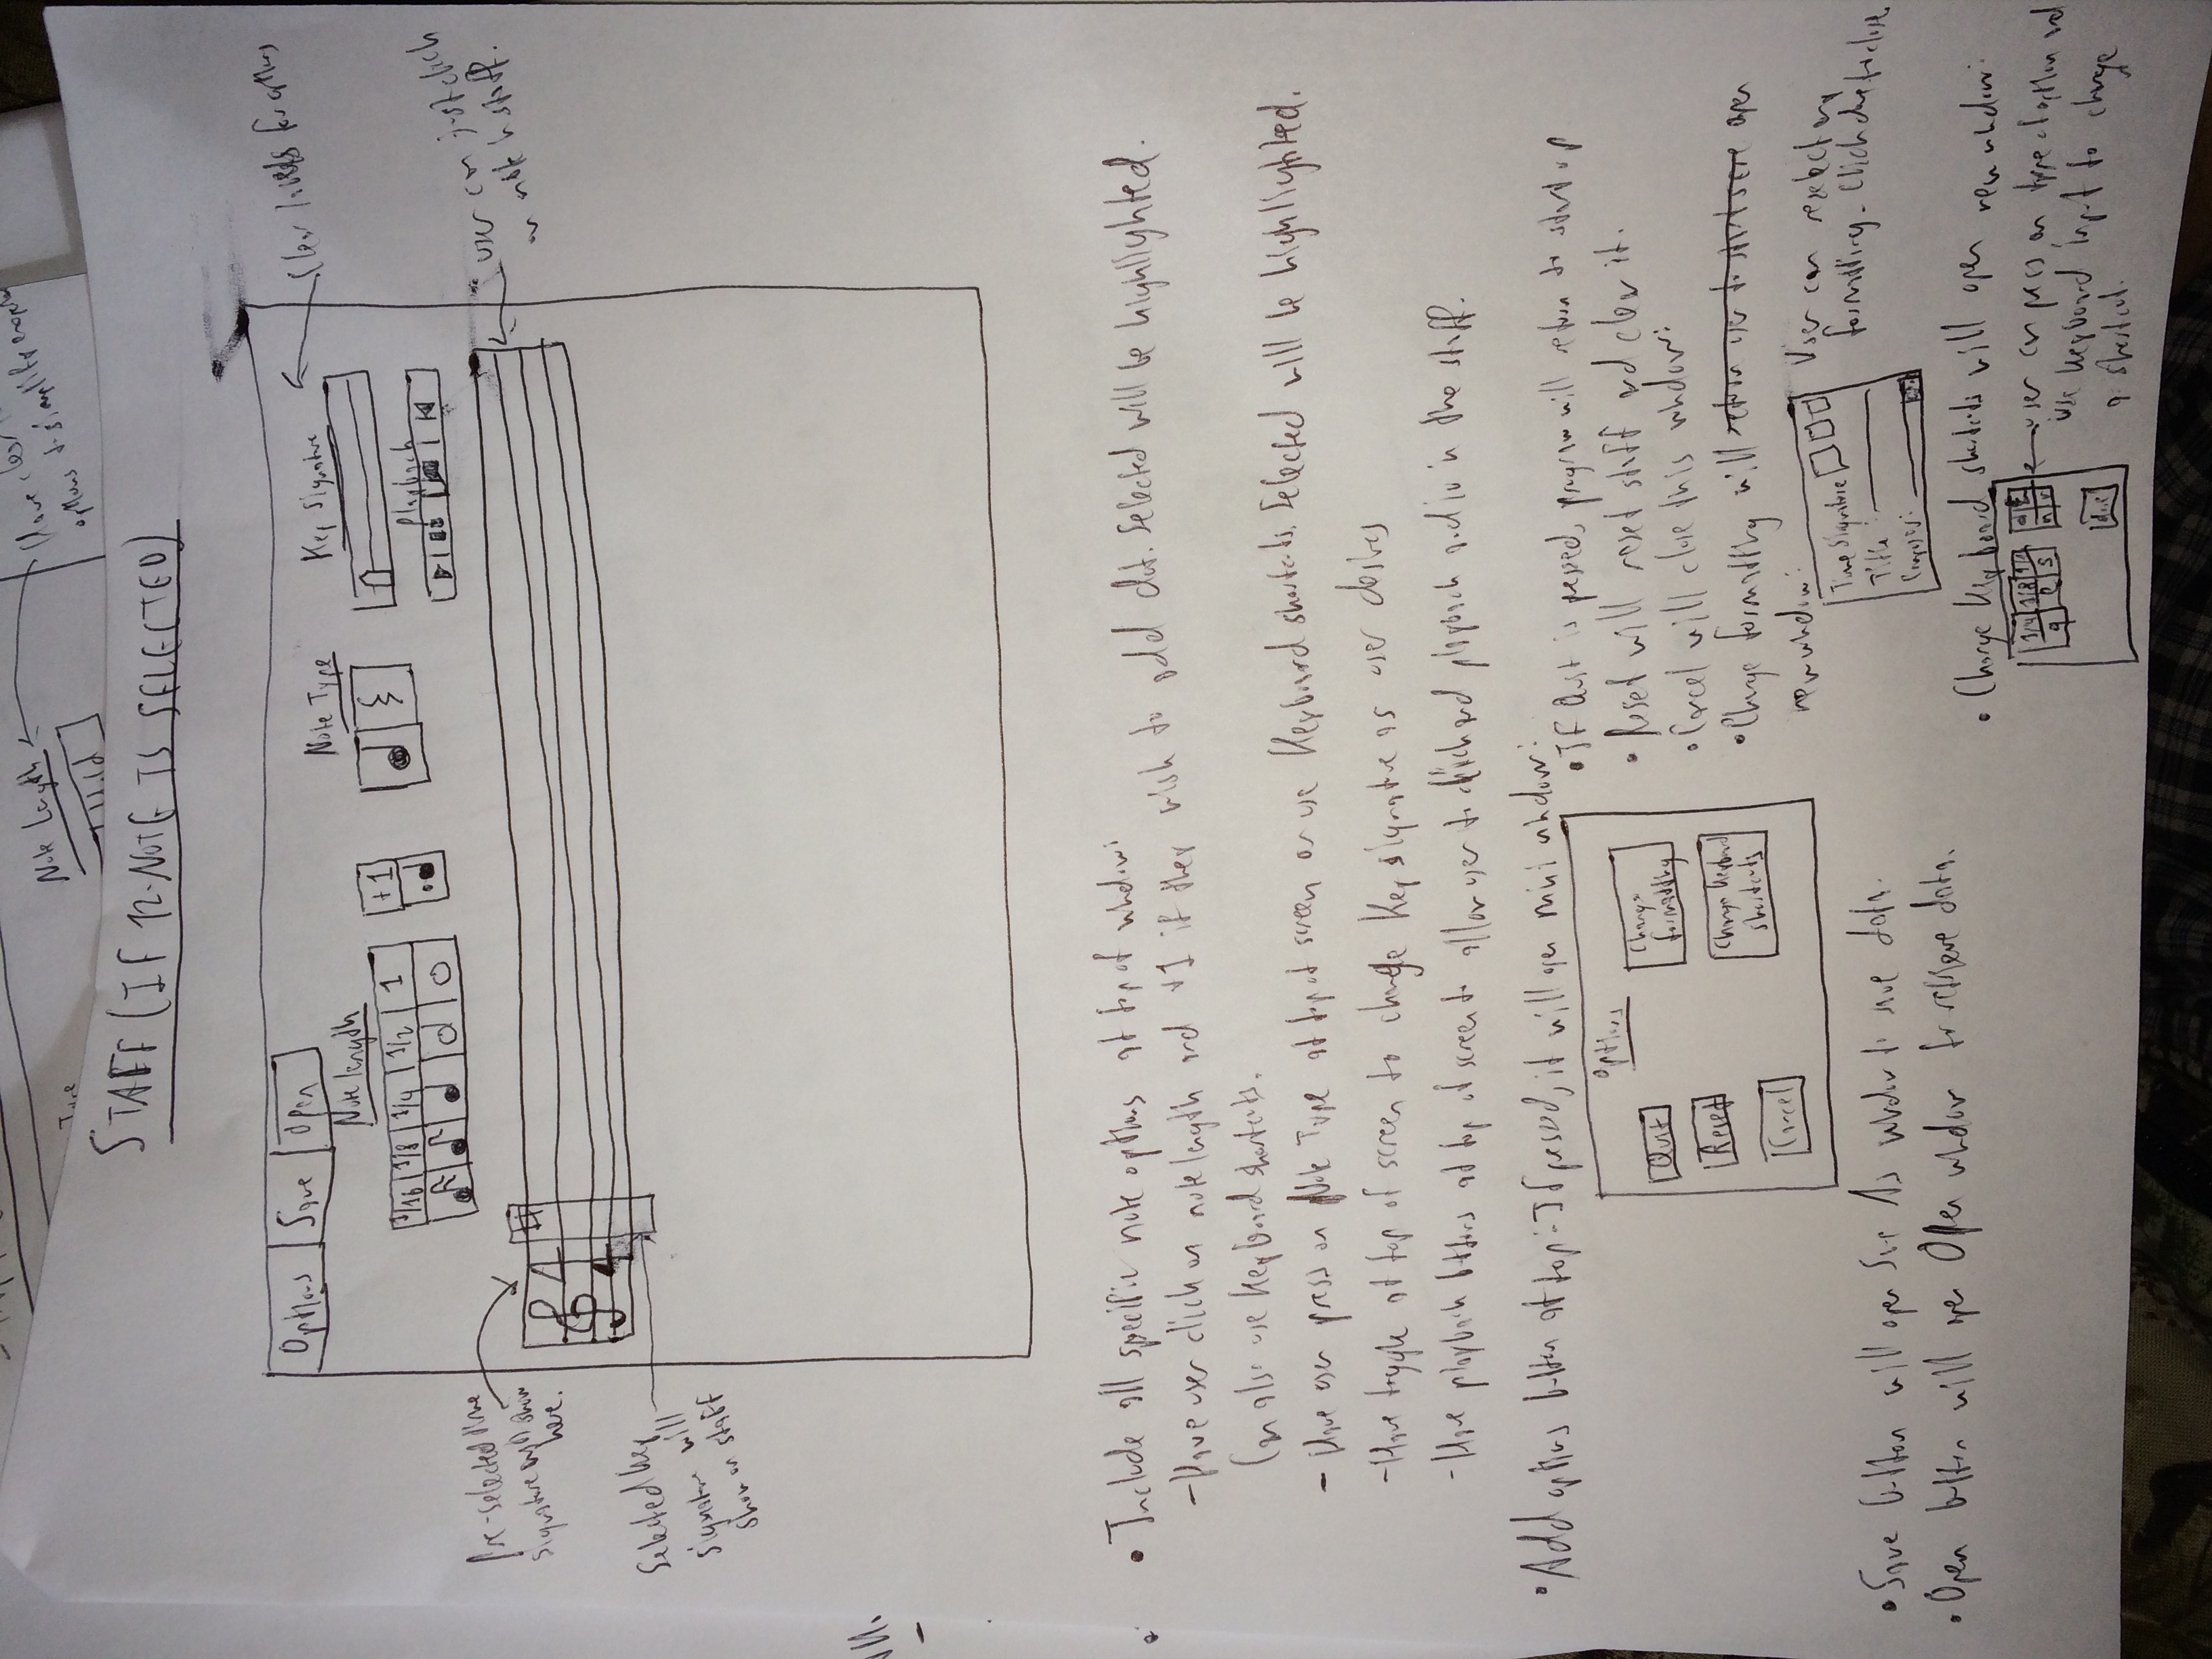 Note Length
Have clear
options to simplify
Type
STAFF (IF 12-NOTE IS SELECTED)
Options Save Open
Note length
Note Type
Key Signature
Clear labels for options
1/16 1/8 1/4 1/2 1
+1
Playback
Pre-selected time
signature will show
here.
User can just click
on note in staff.
4
4
#
Selected Key
signature will
show on staff
• Include all specific note options at top of window:
- Have user click on note length and +1 if they wish to add dot. Selected will be highlighted.
Can also use Keyboard shortcuts.
- Have user press on Note Type at top of screen or use Keyboard shortcuts. Selected will be highlighted.
- Have toggle at top of screen to change Key signature as user desires
- Have playback buttons at top of screen to allow user to click and playback audio in the staff.
• Add options button at top: If pressed, it will open mini window:
Options
Quit
Reset
Cancel
Change formatting
Change Keyboard shortcuts
• If Quit is pressed, program will return to start up
• Reset will reset staff and clear it.
• Cancel will close this window:
• Change formatting will return user to start screen open
new window:
Time Signature
Title:
Composer:
User can reselect any
formatting. Click done to close.
• Save button will open Save As window to save data.
• Open button will open Open window to retrieve data.
• Change Keyboard shortcuts will open new window:
1/4 1/8
q e s
n r
done
user can press on type of option and
use Keyboard input to change
a shortcut.